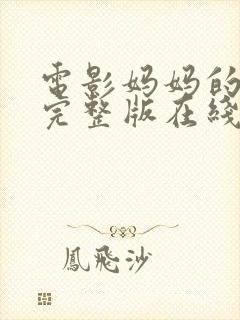 電影妈妈的
完整版在綫
鳳飛沙